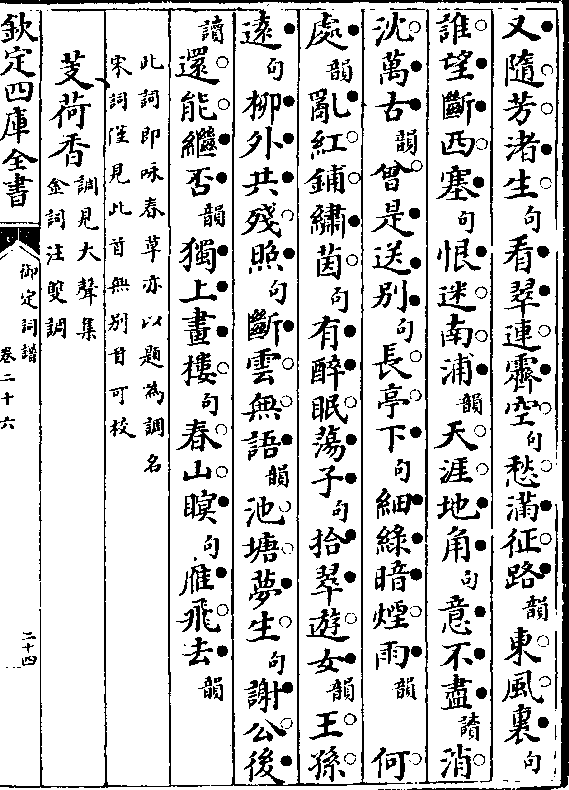 又隨芳渚生句看翠連霽空句愁滿征路韻東風裏句
誰望斷西塞句恨迷南浦韻天涯地角句意不盡讀消
沈萬古韻曾是送別句長亭下句細綠暗煙雨韻 何
處韻亂紅鋪繡茵句有醉眠蕩子句拾翠遊女韻王孫
遠句柳外共殘照句斷雲無語韻池塘夢生句謝公後
讀還能繼否韻獨上畫樓句春山暝句雁飛去韻
此詞即咏春草亦以題為調名
宋詞僅見此首無別首可校
芰荷香調見大聲集
金詞注雙調
欽定四庫全書
御定詞譜
卷二十六
二十四